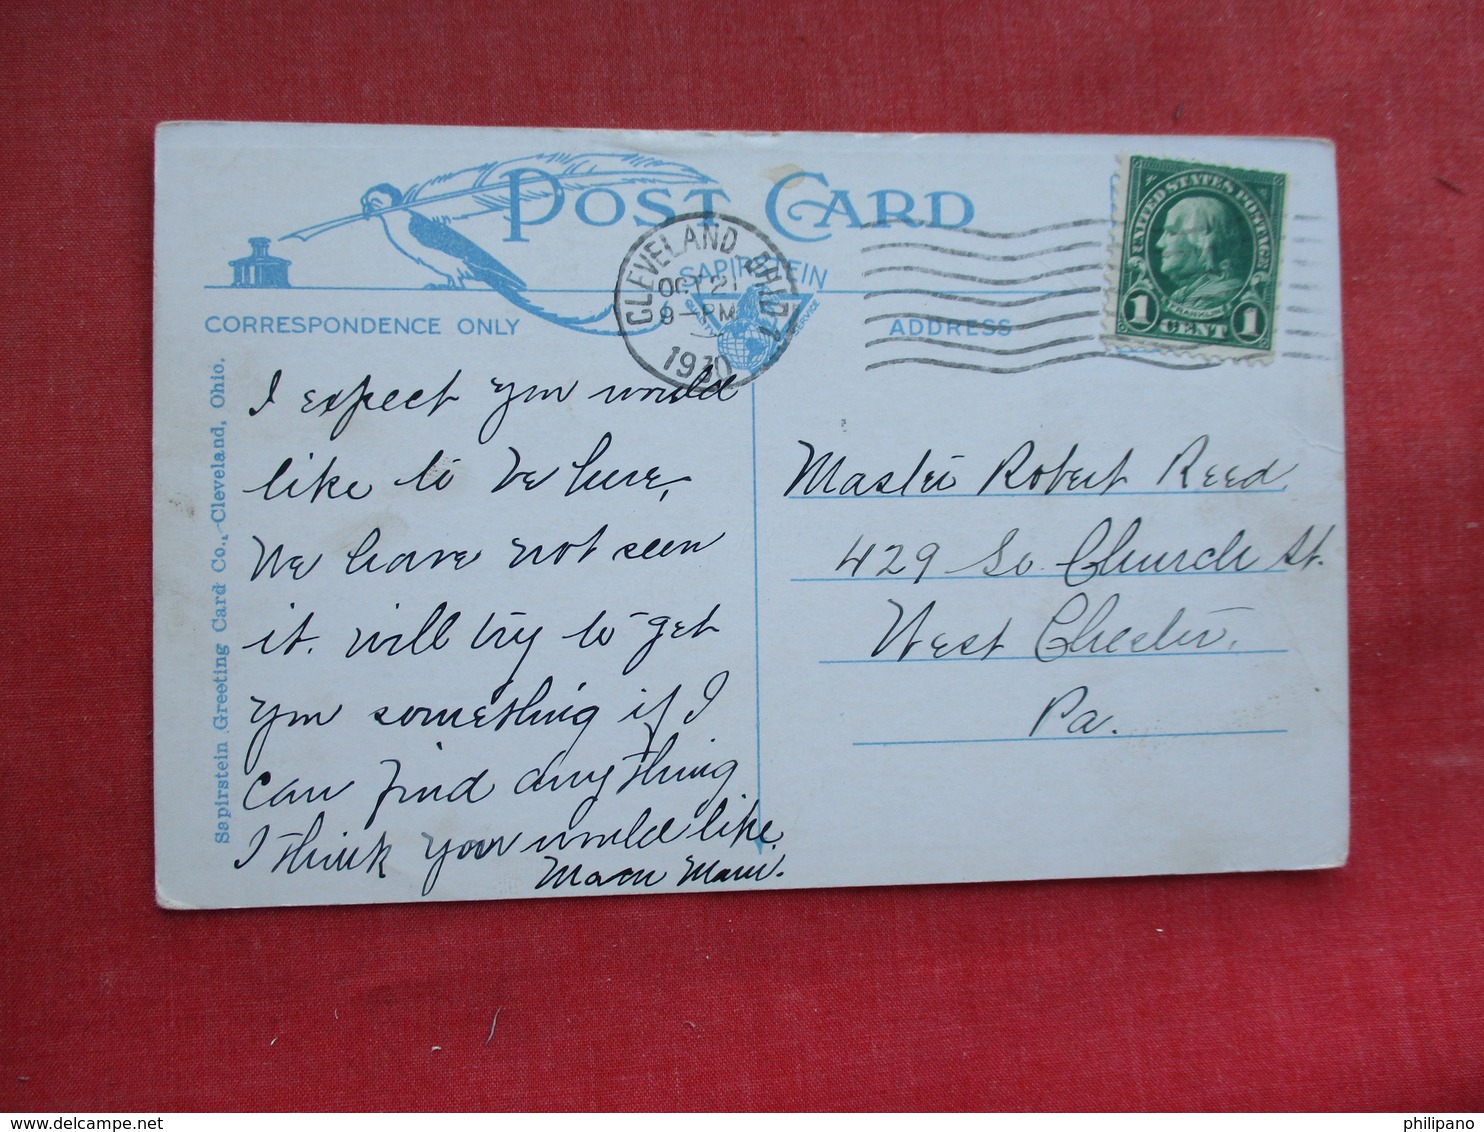 POST CARD
CLEVELAND, OHIO
OCT 21
9-PM
1930
SAPIRSTEIN
QUALITY SERVICE
UNITED STATES POSTAGE
FRANKLIN
1 CENT 1
CORRESPONDENCE ONLY
ADDRESS
Sapirstein Greeting Card Co., Cleveland, Ohio.
I expect you would
like to be here,
We have not seen
it. will try to get
you something if I
can find anything
I think you would like.
Master Robert Reed
429 So Church St.
West Chester,
Pa.
www.delcampe.net
philipano